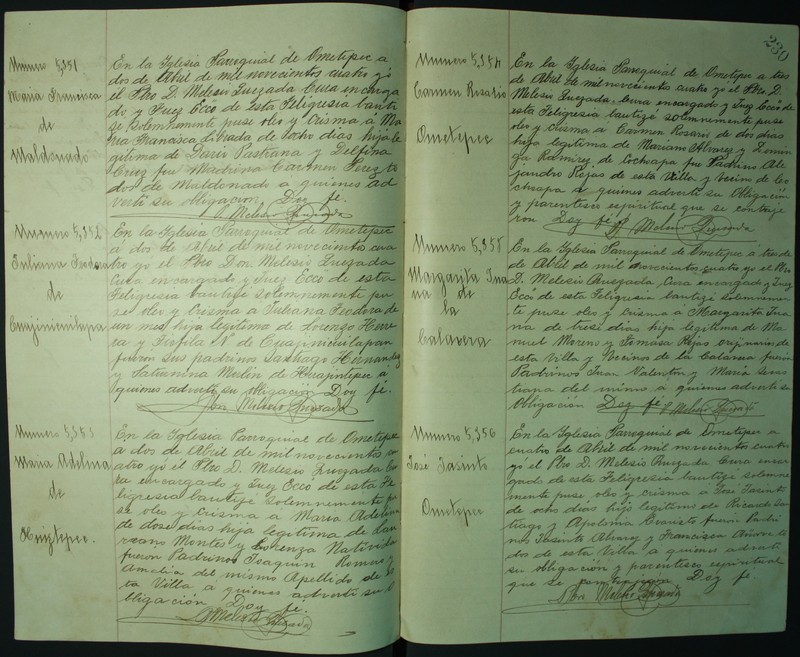 Numero 5,351
Maria Francisca
de
Maldonado
En la Iglesia Parroquial de Ometepec a
dos de Abril de mil novecientos cuatro yó
el Pbro D. Melesio Quezada Cura encarga
do y Juez Ecco de esta Feligresia bauti
se solemnemente puse oleo y crisma á Ma
ria Francisca de ocho dias hija le
gitima de Dario Pastrana y Delfina
Cruz fue Madrina Carmen Perez to
dos de Maldonado a quienes ad
verti su obligacion. Doy fé.
Melesio Quezada
Numero 5,352
Juliana Teodora
de
Cuajinicuilapa
En la Iglesia Parroquial de Ometepec
á dos de Abril de mil novecientos cua
tro yó el Pbro Don Melesio Quezada
Cura encargado y Juez Ecco de esta
Feligresia bautizé solemnemente pu
se oleo y crisma a Juliana Teodora de
un mes hija legitima de Lorenzo Herre
ra y N de Cuajinicuilapa
fueron sus padrinos Santiago Hernandez
y Saturnina Meslin de Huajintepec a
quienes adverti su obligacion Doy fé.
Pbro Melesio Quezada
Numero 5,353
Maria Adelina
de
En la Iglesia Parroquial de Ometepec
a dos de Abril de mil novecientos cu
atro yó el Pbro D. Melesio Quezada Cu
ra encargado y Juez Ecco de esta Fe
ligresia bautizé solemnemente pu
se oleo y crisma a Maria Adelina
de dose dias hija legitima de Lau
reano Montes y Lorenza Natividad
fueron Padrinos Joaquin Roman y
Amelia del mismo Apellido de es
ta Villa a quienes adverti su o
bligación Doy fé.
Melesio Quezada
230
Numero 5,354
Carmen Rosario
Ometepec
En la Iglesia Parroquial de Ometepec a tres
de Abril de mil novecientos cuatro yo el Pbro D.
Melesio Quezada, Cura encargado y Juez Ecco de
esta Feligresia bautizé solemnemente puse
oleo y crisma á Carmen Rosario de dos dias
hija legitima de Mariano Alvarez y Domin
ga Ramirez de Cochoapa fue Padrino Ale
jandro Rojas de esta Villa y vecino de Co
choapa a quienes adverti su Obligacion
y parentesco espiritual que se contraje
ron Doy fé Melesio Quezada
Numero 5,355
Margarita Jua
na de
la
Calavera
En la Iglesia Parroquial de Ometepec á tres de
de Abril de mil novecientos cuatro yo el Pbro
D. Melesio Quezada, Cura encargado y Juez
Ecco de esta Feligresia bautizé solemnemen
te puse oleo y crisma a Margarita Jua
na de trese dias hija legitima de Ma
nuel Moreno y Tomasa Rojas originarios de
esta Villa y Vecinos de la Calavera fueron
Padrinos Juan Valentin y Maria Sevas
tiana del mismo a quienes adverti su
Obligacion Doy fé Melesio Quezada
Numero 5,356
José Jasinto
Ometepec
En la Iglesia Parroquial de Ometepec a
cuatro de Abril de mil novecientos cuatro
yó el Pbro D. Melesio Quezada Cura encar
gado de esta Feligresia bautizé solemne
mente puse oleo y crisma a José Jasinto
de ocho dias hijo legitimo de Ricardo San
tiago y Apolonia fueron Padri
nos Jasinto Alvarez y Francisca to
dos de esta Villa a quienes adverti
su obligacion y parentesco espiritual
que se contrajeron Doy fé
Pbro Melesio Quezada